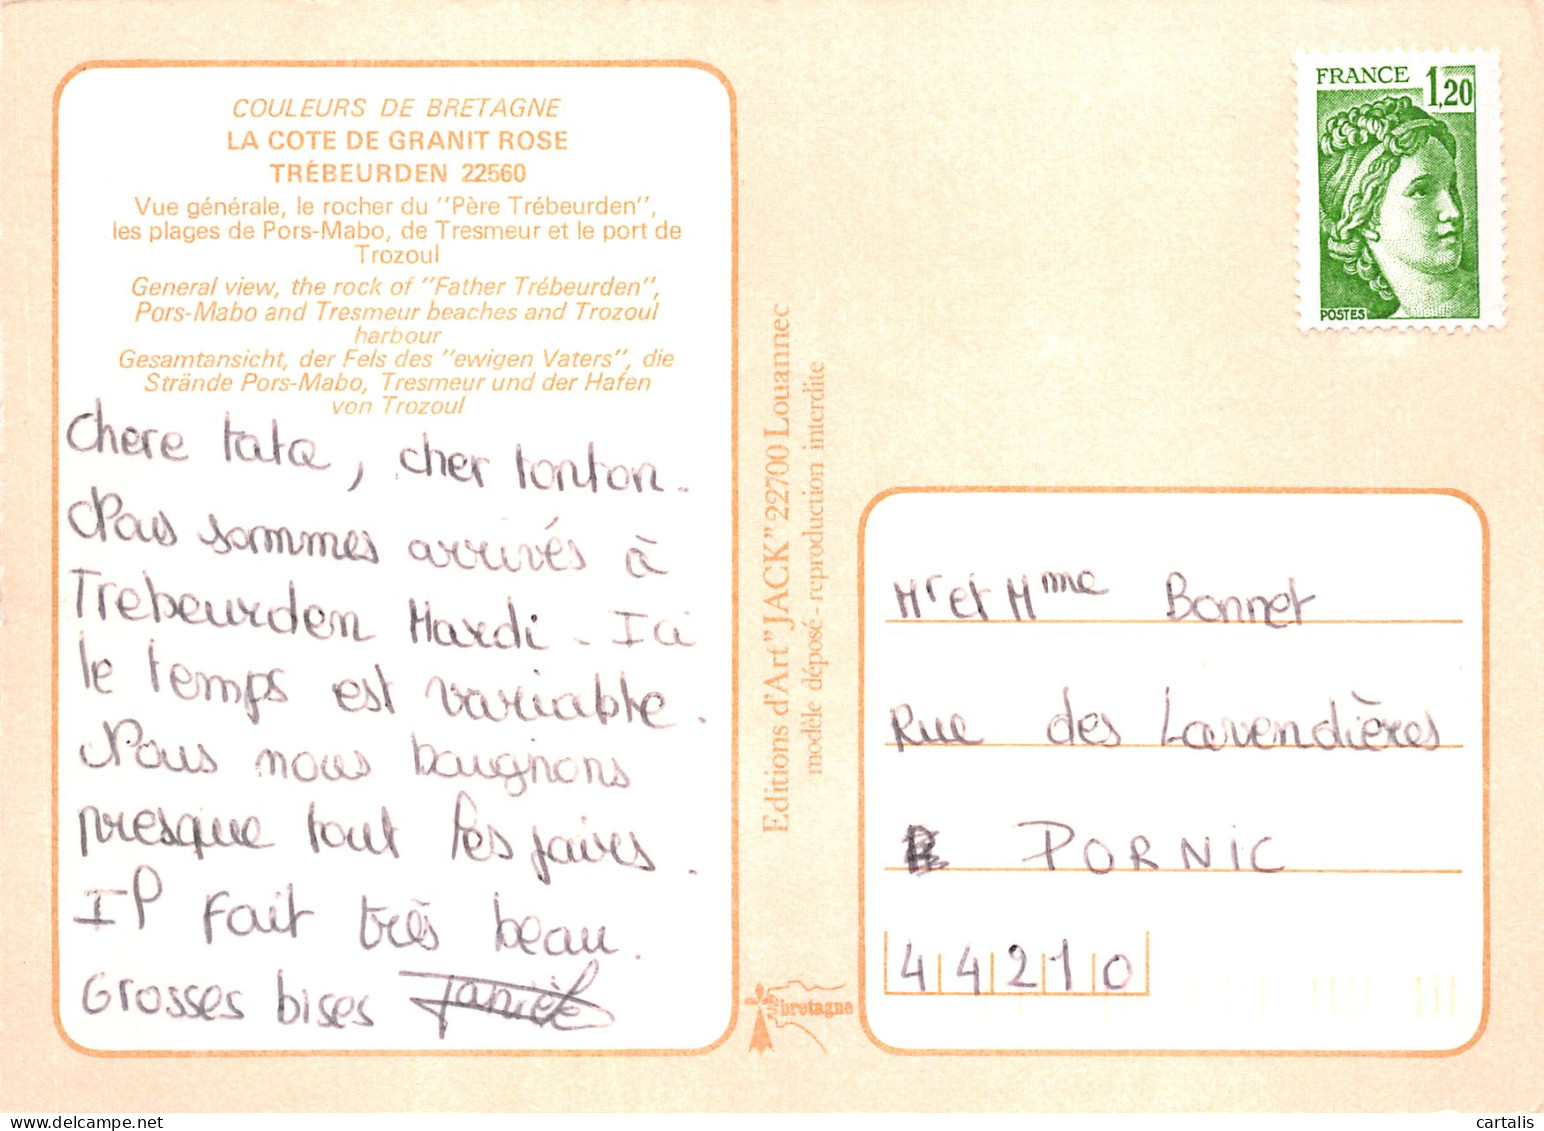 COULEURS DE BRETAGNE
LA COTE DE GRANIT ROSE
TRÉBEURDEN 22560
Vue générale, le rocher du "Père Trébeurden",
les plages de Pors-Mabo, de Tresmeur et le port de
Trozoul
General view, the rock of "Father Trébeurden",
Pors-Mabo and Tresmeur beaches and Trozoul
harbour
Gesamtansicht, der Fels des "ewigen Vaters", die
Strände Pors-Mabo, Tresmeur und der Hafen
von Trozoul
Chere tata, cher tonton.
Nous sommes arrivés à
Trebeurden Mardi - Ici
le temps est variable.
Nous nous baignons
presque tout les jours.
Il fait très beau.
Grosses bises
Editions d'Art "JACK" 22700 Louannec
modèle déposé - reproduction interdite
bretagne
FRANCE 1,20
POSTES
Mr et Mme Bonnet
Rue des Lavendières
PORNIC
44210
cartalis